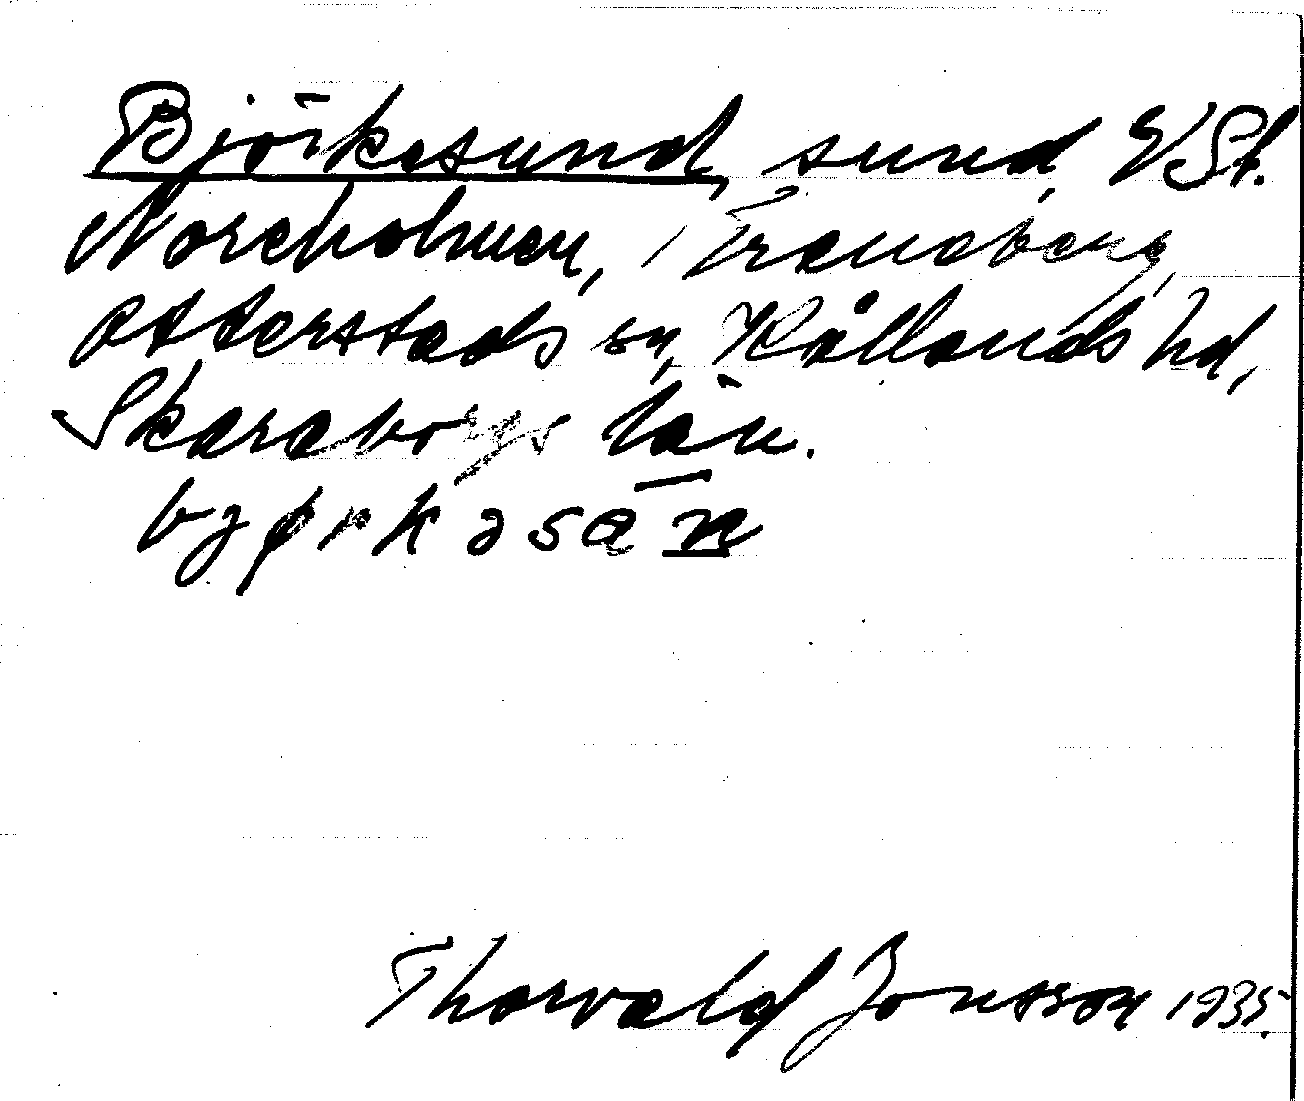 Björkesund, sund, V St.
Noreholmen, i Traneberg,
Otterstads sn, Kållands hd,
Skaraborgs län.
Thorvald Jonsson 1935.